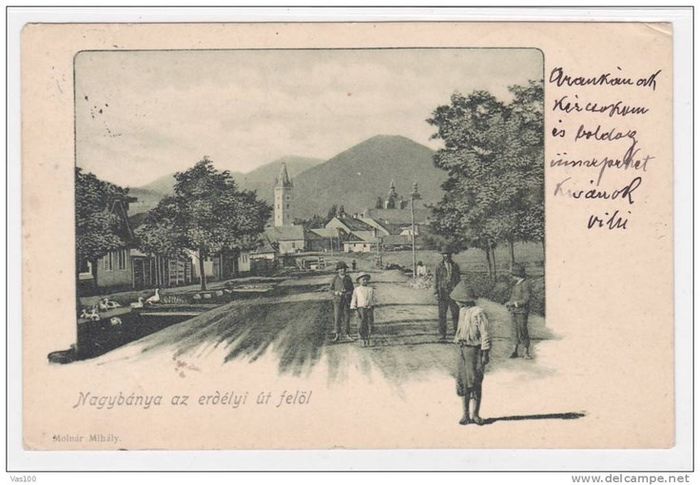 Arankának
Kézcsokom
és boldog
ünnepeket
kívánok
vili
Nagybánya az erdélyi út felöl
Molnár Mihály.
Vas100
www.delcampe.net